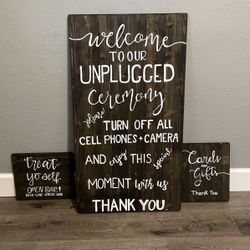 welcome
TO OUR
UNPLUGGED
Ceremony
please TURN OFF ALL
CELL PHONES + CAMERA
AND enjoy THIS special
MOMENT with us
THANK YOU
treat
yo self
OPEN BAR!
Cards
and
Gifts
Thank You